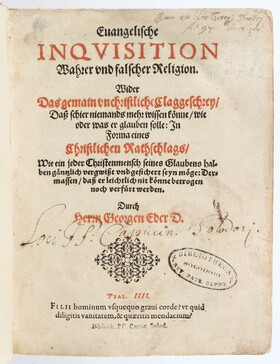 Euangelische
INQVISITION
Wahrer vnd falscher Religion.
Wider
Das gemain vnchristliche Claggeschrey/
Daß schier niemands mehr wissen könne/ wie
oder was er glauben solle: In
Forma eines
Christlichen Rathschlags/
Wie ein jeder Christenmensch seines Glaubens hal-
ben gänglich vergwißt vnd gesichert seyn möge: Der-
massen/ daß er leichtlich nit könne betrogen
noch verfürt werden.
Durch
Herrn Georgen Eder D.
Loci PP. Capucin. Solodori.
BIBLIOTHECA
SOLODORI
PATR. CAPUC.
PSAL. IIII.
FILII hominum vsquequo graui corde? vt quid
diligitis vanitatem, & quæritis mendacium?
Biblioth. PP. Capuc. Solod.